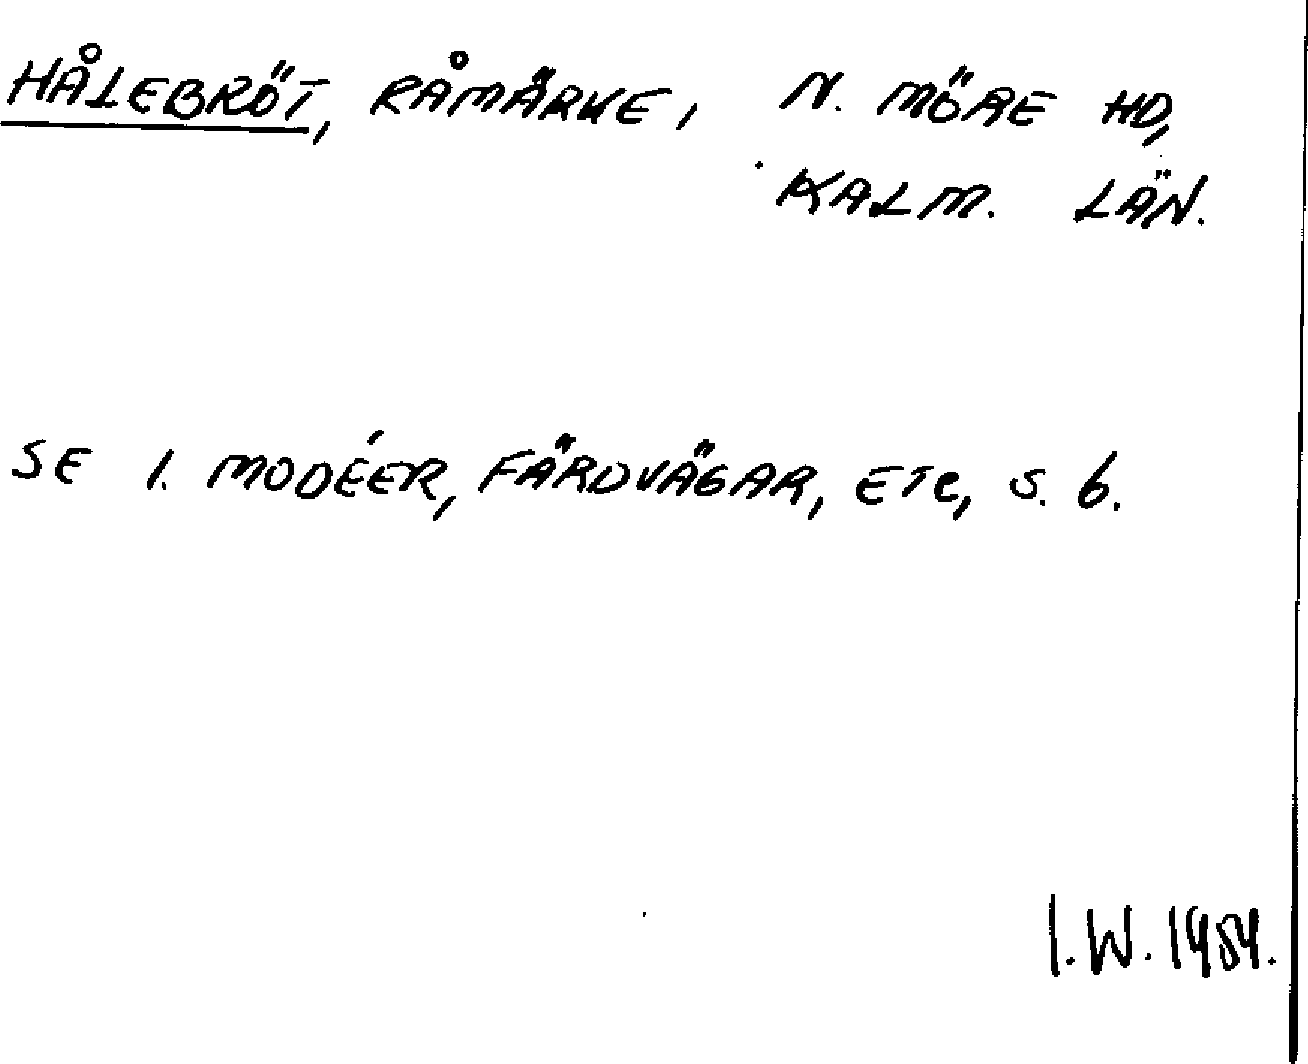 HÅLEBRÖT, RÅMÄRKE, N. MÖRE HD,
KALM. LÄN.
SE I. MODÉER, FÄRDVÄGAR, ETC, S. 6.
I.W. 1984.